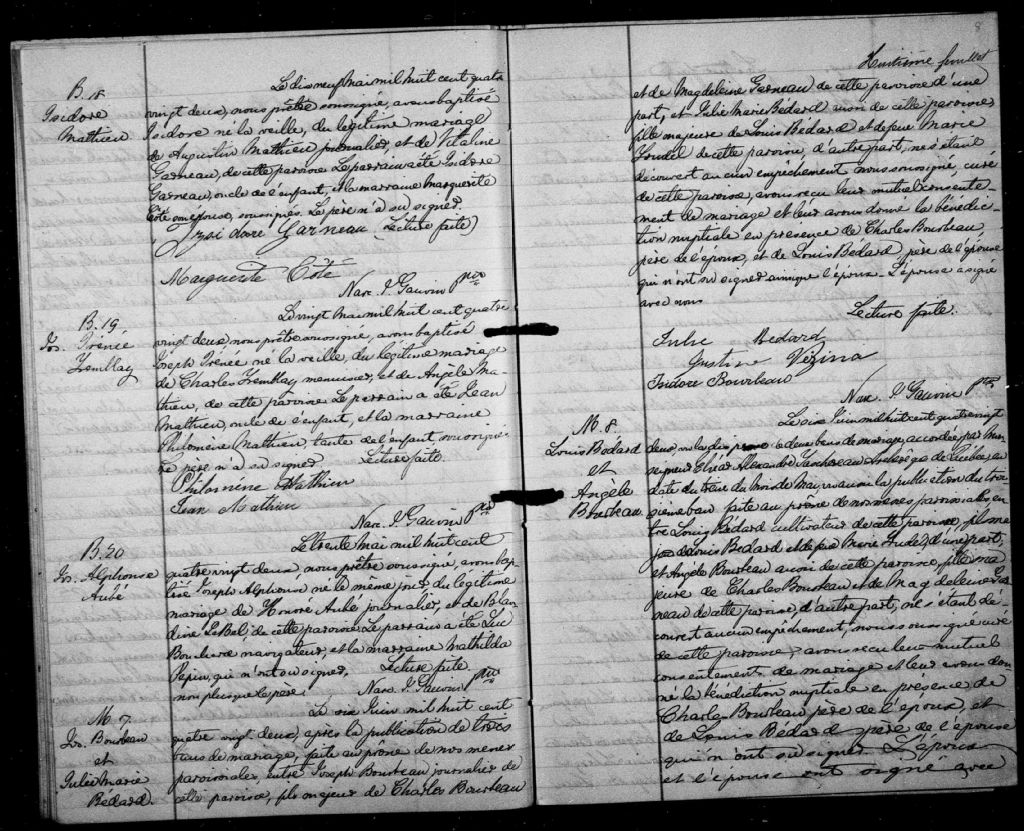 B. 18
Isidore
Mathieu
Le dix neuf mai mil huit cent quatre
vingt deux, nous prêtre soussigné, avons baptisé
Isidore né la veille, du légitime mariage
de Augustin Mathieu journalier, et de Vitaline
Garneau, de cette paroisse. Le parrain a été Isidore
Garneau, oncle de l'enfant, et la marraine Marguerite
Côté son épouse, soussignés. Le père n'a su signer.
Izsi dore Garneau Lecture faite)
Marguerite Côté
Narc. J. Gauvin Ptre
B. 19
Jos. Irénée
Tremblay
Le vingt mai mil huit cent quatre
vingt deux, nous prêtre soussigné, avons baptisé
Joseph Irénée né la veille, du légitime mariage
de Charles Tremblay, menuisier, et de Angèle Ma-
thieu, de cette paroisse. Le parrain a été Jean
Mathieu, oncle de l'enfant, et la marraine
Philomène Mathieu, tante de l'enfant soussignés.
Le père n'a su signer. Lecture faite
Philomène Mathieu
Jean Mathieu
Narc. J. Gauvin Ptre
B. 20
Jos. Alphonse
Aubé
Le trente mai mil huit cent
quatre vingt deux, nous prêtre soussigné, avons bap-
tisé Joseph Alphonse né le même jour du légitime
mariage de Honoré Aubé journalier, et de Blan-
dine LeBel, de cette paroisse. Le parrain a été Luc
Bouchard navigateur, et la marraine Mathilda
Pepin, qui n'ont su signer,
non plus que le père. Lecture faite
Narc. J. Gauvin Ptre
M. 7.
Jos. Bourbeau
et
Julie Marie
Bédard.
Le six Juin mil huit cent
quatre vingt deux, après la publication de trois
bans de mariage, faite au prône de nos messes
paroissiales, entre Joseph Bourbeau journalier de
cette paroisse, fils majeur de Charles Bourbeau
8
Huitième feuillet
et de Magdeleine Garneau de cette paroisse d'une
part, et Julie Marie Bédard aussi de cette paroisse,
fille majeure de Louis Bédard et de feue Marie
Trudel de cette paroisse, d'autre part, ne s'étant
découvert aucun empêchement nous soussigné, curé
de cette paroisse, avons reçu leur mutuel consente-
ment de mariage et leur avons donné la bénédic-
tion nuptiale en présence de Charles Bourbeau,
père de l'époux, et de Louis Bédard, père de l'épouse
qui n'ont su signer ainsi que l'époux. L'épouse a signé
avec nous
Lecture faite.
Julie Bedard
Gustine Vézina
Isidore Bourbeau
Narc. J. Gauvin Ptre
M. 8.
Louis Bedard
et
Angèle
Bourbeau
Le six Juin mil huit cent quatre vingt
deux, vu la dispense de deux bans de mariage, accordée par Mon-
seigneur Elzéar Alexandre Taschereau Archevêque de Québec, en
date du treize du mois de Mai, vu aussi la publication du troi-
sième ban faite au prône de nos messes paroissiales en-
tre Louis Bédard cultivateur de cette paroisse, fils ma-
jeur de Louis Bédard et de feue Marie Trudel, d'une part,
et Angèle Bourbeau aussi de cette paroisse, fille ma-
jeure de Charles Bourbeau et de Magdeleine Gar-
neau de cette paroisse, d'autre part, ne s'étant dé-
couvert aucun empêchement, nous soussigné curé
de cette paroisse, avons reçu leur mutuel
consentement de mariage et leur avons don-
né la bénédiction nuptiale en présence de
Charles Bourbeau père de l'époux, et
de Louis Bédard père de l'épouse
qui n'ont su signer. L'époux
et l'épouse ont signé avec